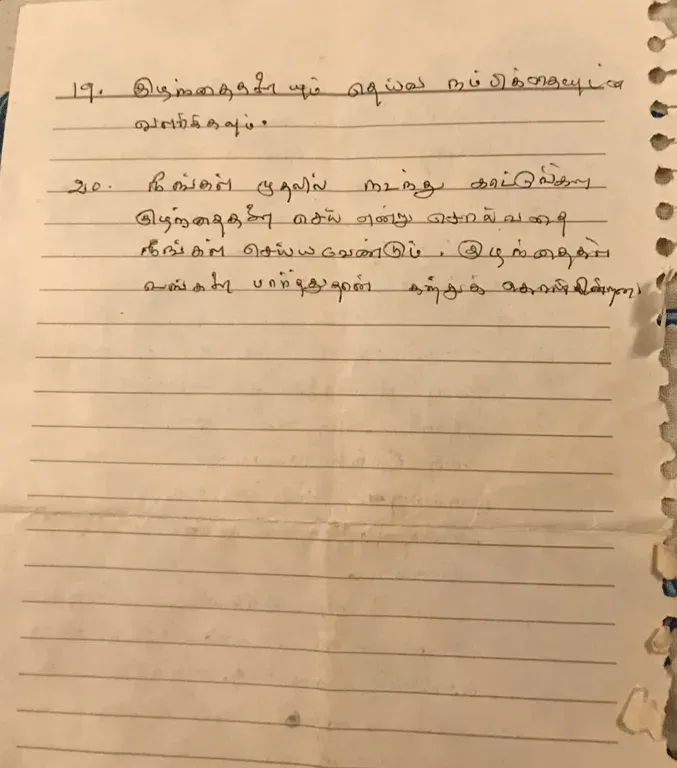 19. குழந்தைகளையும் தெய்வ நம்பிக்கையுடன்
வளர்க்கவும்.
20. நீங்கள் முதலில் நடந்து காட்டுங்கள்
குழந்தைகளை செய் என்று சொல்வதை
நீங்கள் செய்யவேண்டும். குழந்தைகள்
உங்களை பார்த்துதான் கற்றுக் கொள்கின்றன.